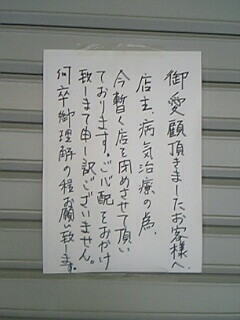 御愛顧頂きましたお客様へ
店主、病気治療の為、
今暫く店を閉めさせて頂い
ております。ご心配をおかけ
致しまて申し訳ございません。
何卒御理解の程お願い致します。